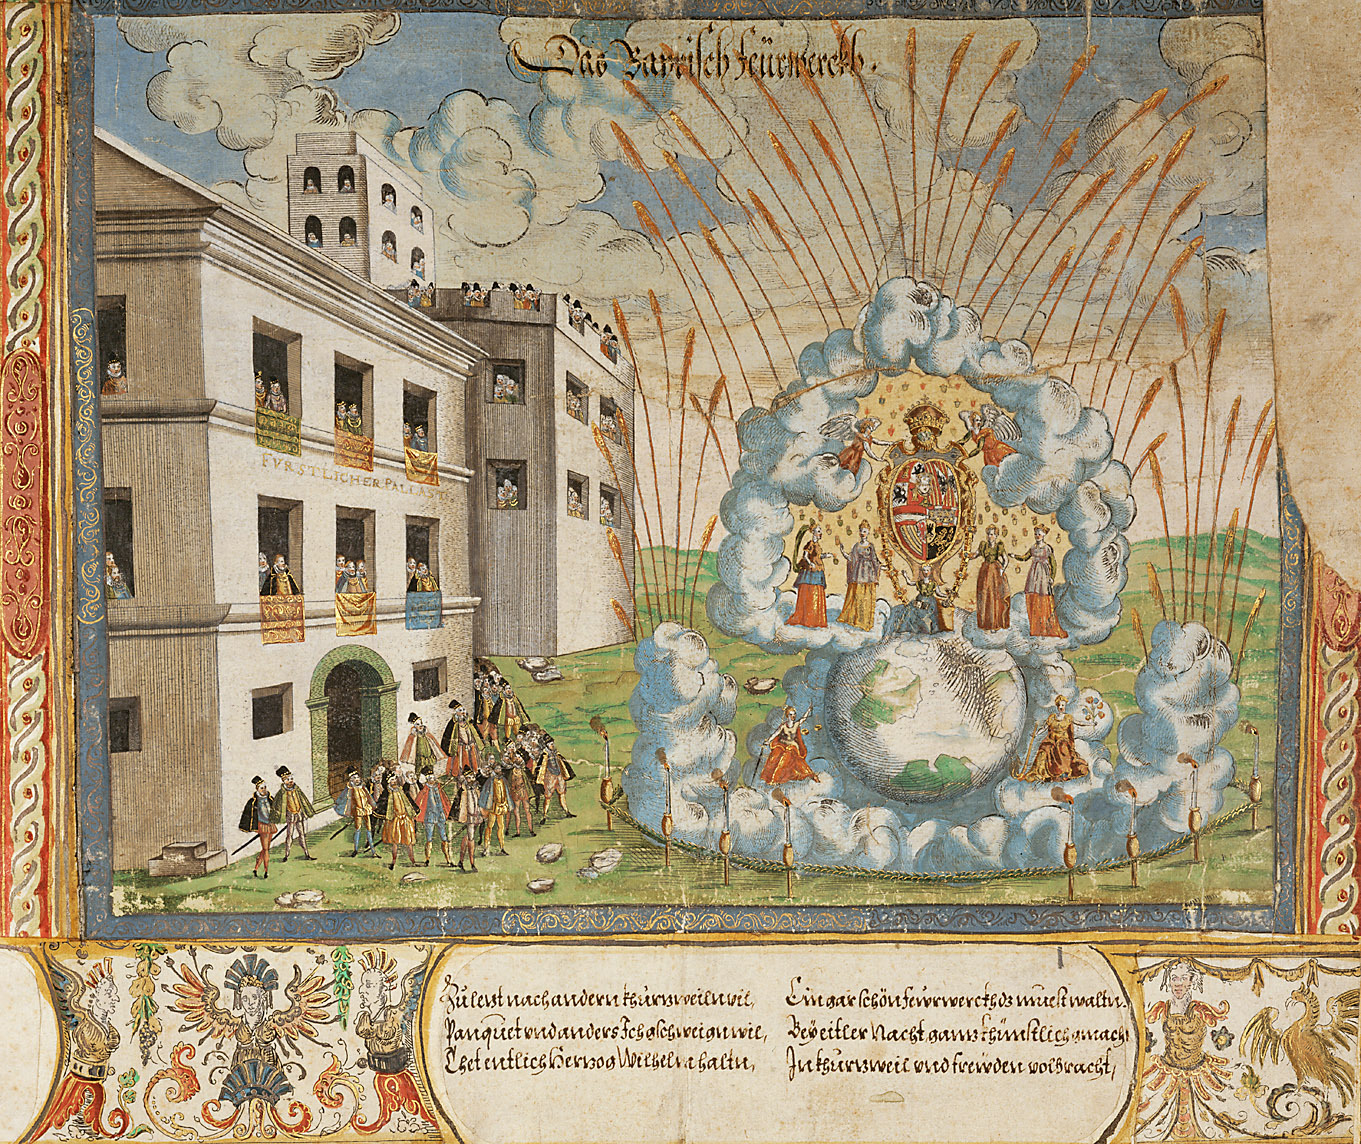 Das Bayrisch feürwerckh.
FVRSTLICHER PALLAST
Zuletst nach andern khurzweiln vil,
Panquet vnd anders Ich gschweign wil,
Thet entlich Herzog Wilhelm haltn,
Ein gar schön feurwerckh dz muest waltn.
Bey eitler Nacht ganz khünstlich gmacht
In khurzweil vnd frewden volbracht,